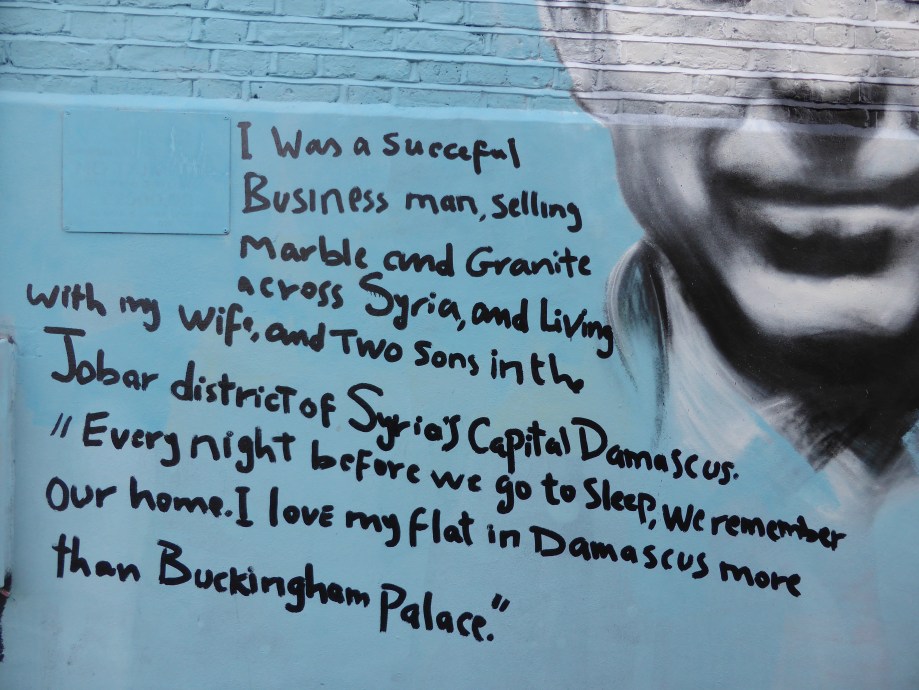 I Was a succeful
Business man, selling
marble and Granite
across Syria, and Living
with my wife, and Two sons in the
Jobar district of Syria's Capital Damascus.
"Every night before we go to sleep, we remember
our home. I love my flat in Damascus more
than Buckingham Palace."